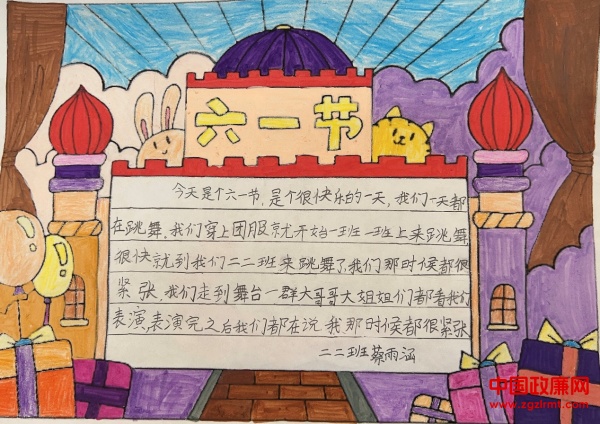 六一节
今天是个六一节，是个很快乐的一天，我们一天都
在跳舞，我们穿上团服就开始一班一班上来跳舞，
很快就到我们二二班来跳舞了，我们那时候都很
紧张，我们走到舞台一群大哥哥大姐姐们都看我们
表演，表演完之后我们都在说我那时候都很紧张
二二班蔡雨涵
中国政廉网
www.zgzlrmt.com